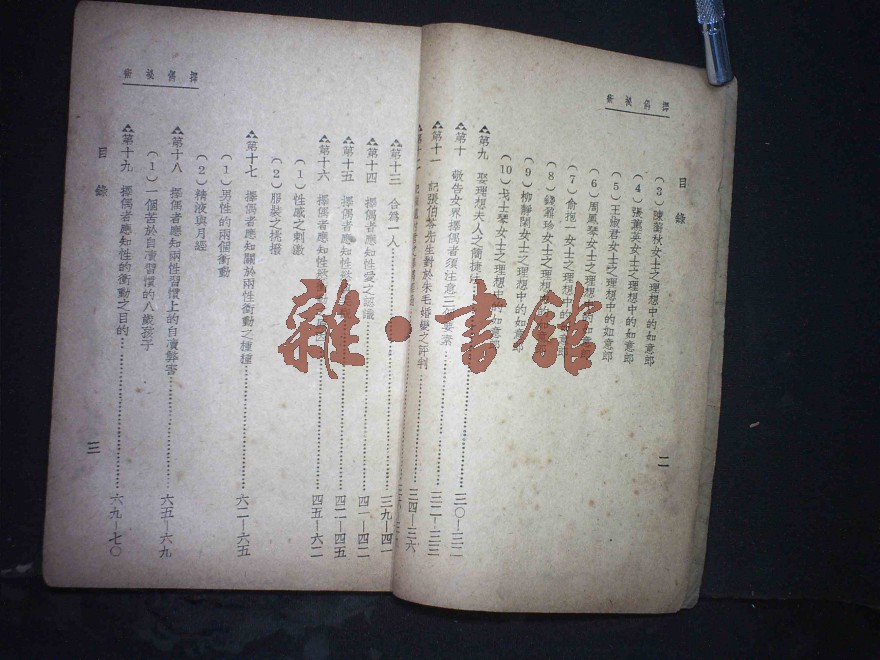 擇偶秘術
目錄
(3)陳菊秋女士之理想中的如意郎
(4)張蕙英女士之理想中的如意郎
(5)王淑君女士之理想中的如意郎
(6)周鳳琴女士之理想中的如意郎
(7)俞抱一女士之理想中的如意郎
(8)錢雅珍女士之理想中的如意郎
(9)柳靜閑女士之理想中的如意郎
(10)戈士琴女士之理想中的如意郎
第九 娶理想夫人之簡捷法……三〇—三二
第十 敬告女界擇偶者須注意三要素……三二—三三
第十一 記張伯苓先生對於朱毛婚變之評判……三四—三六
第十二
二
擇偶秘術
第十三 合爲一人……三九—四一
第十四 擇偶者應知性愛之認識……四一—四二
第十五 擇偶者應知性……四二—四五
第十六 擇偶者應知性慾衝動……四五—六二
(1)性感之刺激
(2)服裝之挑撥
第十七 擇偶者應知關於兩性衝動之種種……六二—六五
(1)男性的兩個衝動
(2)精液與月經
第十八 擇偶者應知兩性習慣上的自凟弊害……六五—六九
(1)一個苦於自凟習慣的八歲孩子
第十九 擇偶者應知性的衝動之目的……六九—七〇
目錄
三
雜·書館